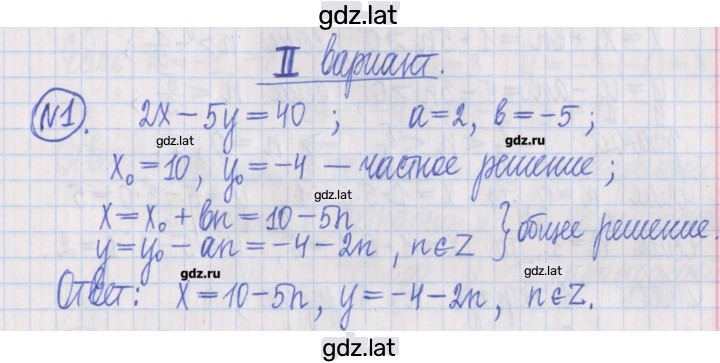 gdz.lat
II вариант.
№1. 2x − 5y = 40 ; a = 2, в = −5 ;
gdz.lat gdz.lat
x₀ = 10, y₀ = −4 — частное решение ;
gdz.lat
x = x₀ + вn = 10 − 5n
y = y₀ − an = −4 − 2n , n ∈ Z } общее решение.
gdz.lat gdz.lat
Ответ: x = 10 − 5n , y = −4 − 2n , n ∈ Z.
gdz.lat
gdz.lat